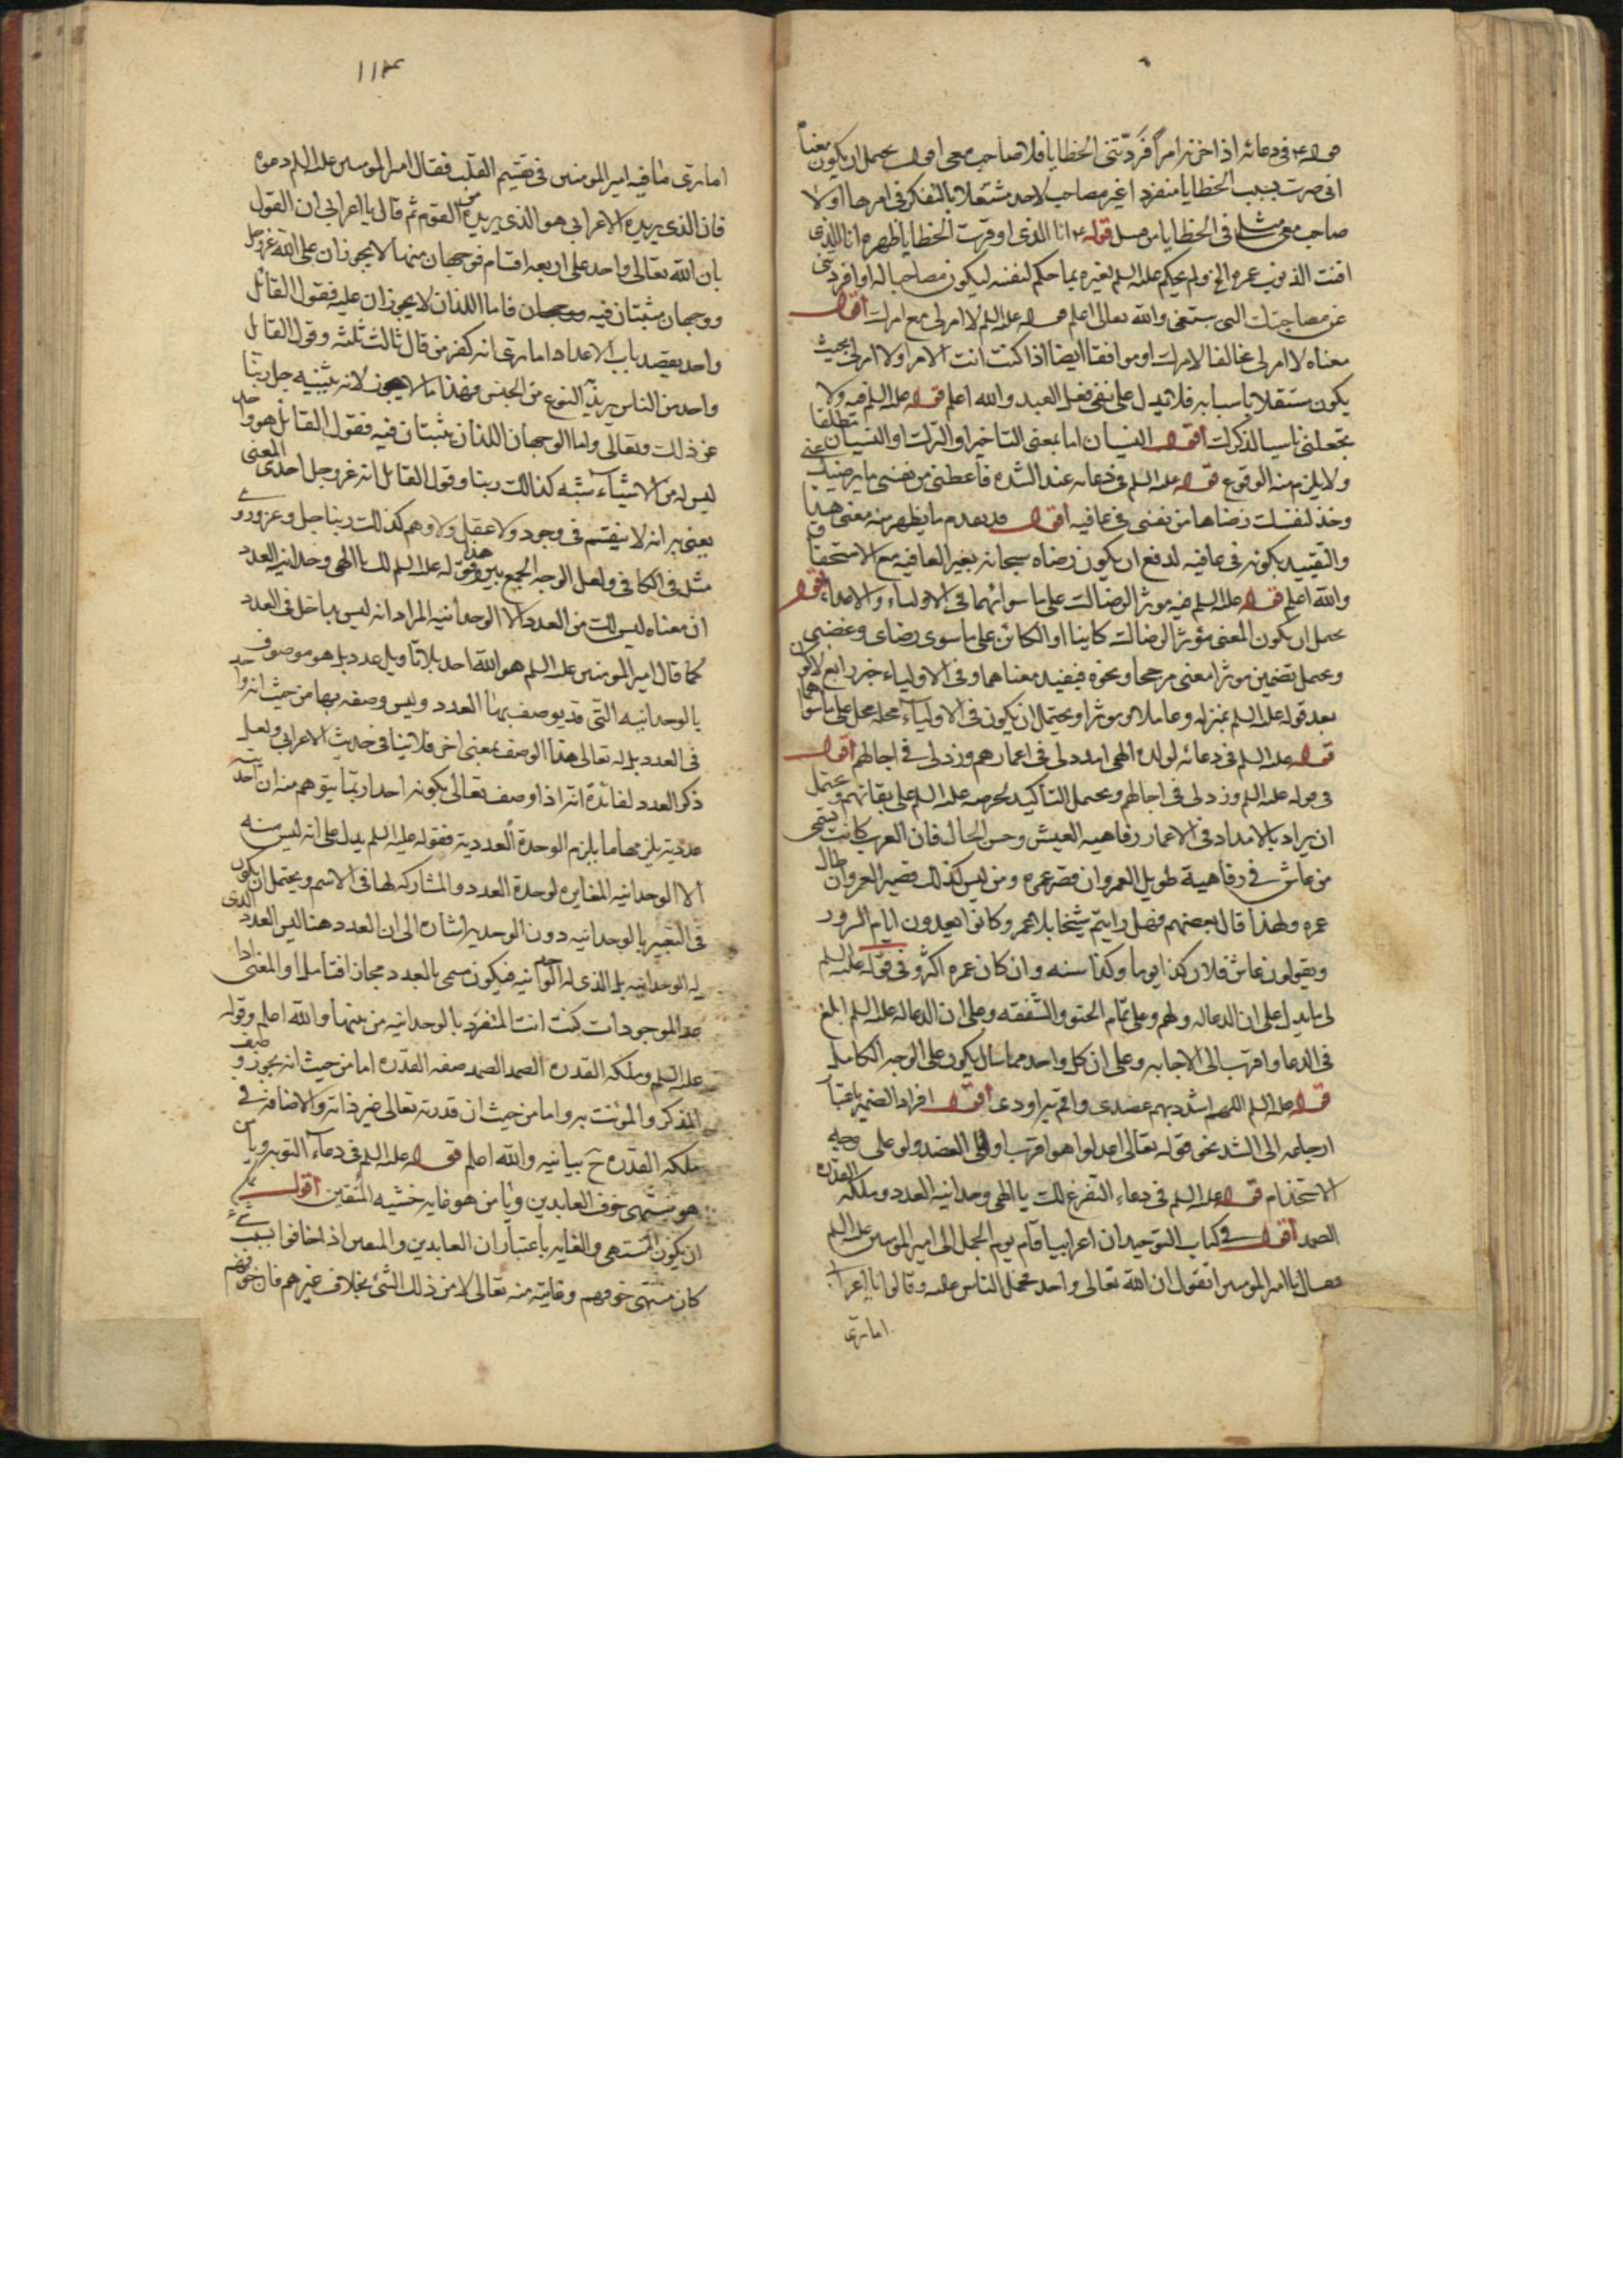 قوله ع في دعائه اذا حزنه امر افردتنى الخطايا فلا صاحب معى اقول يحتمل ان يكون معناه
انى صرت بسبب الخطايا منفردا غير مصاحب لاحد مشتغلا بالتفكر فى امرها او لا
صاحب معى مثلى فى الخطايا من قبيل قوله ع انا الذى اوقرت الخطايا ظهره انا الذى
افنت الذنوب عمره الخ ولم يحكم عليه السلم لغيره بما حكم لنفسه ليكون مصاحبا له او افردتنى
عن مصاحبتك التى والله تعالى اعلم قوله عليه السلم لا امر لى مع امرك اقول
معناه لا امر لى مخالفا لامرك او موافقا ايضا اذا كنت انت الامر او لا امر لى بحيث
يكون مستقلا باسبابه فلا يدل على نفى فعل العبد والله اعلم قوله عليه السلم فيه ولا
تجعلنى ناسيا لذكرك اقول النسيان اما بمعنى التاخير او الترك او النسيان مطلقا
ولا يلزم منه الوقوع قوله عليه السلم فى دعائه عند الشدة فاعطنى من نفسى ما يرضيك عنى
وخذ لنفسك رضاها من نفسى فى عافيه اقول قد تقدم ما يظهر منه معنى هذا
والتقييد بكونه فى عافيه لدفع ان يكون رضاه سبحانه بغير العافيه مع الاستحقاق
والله اعلم قوله عليه السلم فيه موثرا لرضاك على ما سواهما فى الاولياء والاعداء اقول
يحتمل ان يكون المعنى مؤثرا لرضاك كاينا او الكائن على ما سوى رضاى وغضبى
ويحتمل تضمين موثرا معنى مرجحا ونحوه فيفيد معناهما وفى الاولياء خبر رابع لاكون
بعد قوله عليه السلم بمنزله وعاملا وموثرا ويحتمل ان يكون فى الاولياء محله محل على ما سواهما
قوله عليه السلم فى دعائه لولده الهى امدد لى فى اعمارهم وزد لى فى اجالهم اقول
فى قوله عليه السلم وزد لى فى اجالهم يحتمل التأكيد لحرصه عليه السلم على بقائهم ويحتمل
ان يراد بالامداد فى الاعمار رفاهيه العيش وحسن الحال فان العرب كانت تسمى
من عاش فى رفاهية طويل العمر وان قصر عمره ومن ليس كذلك قصير العمر وان طال
عمره ولهذا قال بعضهم فهل رايتم شيخا بلا عمر وكانوا يعدون ايام السرور
ويقولون عاش فلان كذا يوما وكذا سنه وان كان عمره اكثر وفى قوله عليه السلم
لى ما يدل على ان الدعا له ولهم وعلى تمام الحنو والشفقه وعلى ان الدعا له عليه السلم ابلغ
فى الدعا واقرب الى الاجابه وعلى ان كل واحد مما سال يكون على الوجه الكامل
قوله عليه السلم اللهم اشدد بهم عضدى واقم بهم اودى اقول افراد الضمير باعتبار
ارجاعه الى الشد نحو قوله تعالى اعدلوا هو اقرب او الى العضد ولو على وجه
الاستخدام قوله عليه السلم فى دعاء التفرغ لك يا الهى وحدانيه العدد وملكه القدره
الصمد اقول فى كتاب التوحيد ان اعرابيا قام يوم الجمل الى امير المومنين عليه السلم
فقال يا امير المومنين اتقول ان الله تعالى واحد فحمل الناس عليه وقالوا يا اعرابى
اما ترى
١١٤
اما ترى ما فيه امير المومنين فى تقسيم القلب فقال امير المومنين عليه السلم دعوه
فان الذى يريده الاعرابى هو الذى يريده من القوم ثم قال يا اعرابى ان القول
بان الله تعالى واحد على اربعه اقسام فوجهان منها لا يجوزان على الله عز وجل
ووجهان مثبتان فيه فاما اللذان لا يجوزان عليه فقول القائل
واحد يقصد باب الاعداد اما ترى انه كفر من قال ثالث ثلثه وقول القائل
واحد من الناس يريد به النوع من الجنس فهذا ما لا يجوز لانه تشبيه جل ربنا
عن ذلك وتعالى واما الوجهان اللذان يثبتان فيه فقول القائل هو واحد
ليس له من الاشياء شبه كذلك ربنا وقول القائل انه عز وجل احدى المعنى
يعنى به انه لا ينقسم فى وجود ولا عقل ولا وهم كذلك ربنا جل وعز وروى
مثله فى الكافى ولعل الوجه الجمع بين هذا وقوله عليه السلم لك يا الهى وحدانيه العدد
ان معناه ليس لك من العدد الا الوحدانيه المراد انه ليس بداخل فى العدد
كما قال امير المومنين عليه السلم هو الله احد بلا تاويل عدد بل هو موصوف
بالوحدانيه التى قد يوصف بها العدد وليس وصفه بها من حيث انه واحد
فى العدد بل له تعالى هذا الوصف بمعنى اخر فلا ينافى حديث الاعرابى ولعل
ذكر العدد لفائدة انه اذا وصف تعالى بكونه احدا ربما يتوهم منه ان احديته
عدديه يلزمها ما يلزم الوحدة العدديه فقوله عليه السلم يدل على انه ليس منه
الا الوحدانيه المغايره لوحدة العدد والمشاركه لها فى الاسم ويحتمل ان يكون
فى التعبير بالوحدانيه دون الوحديه اشاره الى ان العدد هنا ليس العدد الذى
له الوحدانيه بل الذى له الوحدانيه فيكون سمى بالعدد مجازا فتامل او المعنى اذا
عد الموجودات كنت انت المتفرد بالوحدانيه من بينها والله اعلم وقوله
عليه السلم وملكه القدره الصمد الصمد صفه القدره اما من حيث انه يجوز وصف
المذكر والمؤنث به واما من حيث ان قدرته تعالى غير ذاته والاضافه فى
ملكه القدره ح بيانيه والله اعلم قوله عليه السلم فى دعاء التوبه ويا من
هو منتهى خوف العابدين ويا من هو غايه خشيه المتقين اقول يمكن
ان يكون المنتهى والغايه باعتبار ان العابدين والمتقين اذا خافوا بسبب شىء
كان منتهى خوفهم وغايته منه تعالى لا من ذلك الشئ بخلاف غيرهم فان خوفهم